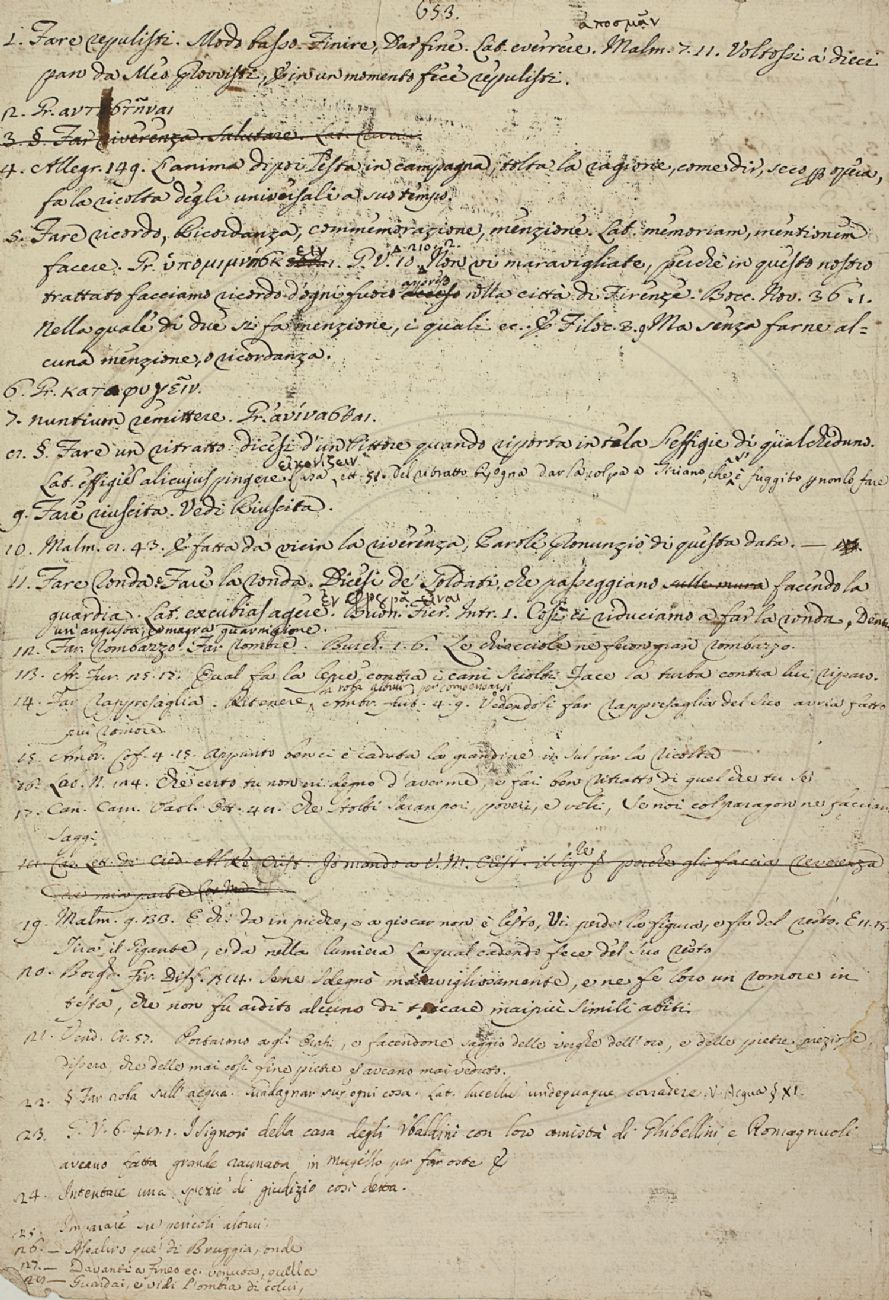 653.
ἀποσμᾶν
1. Fare repulisti. Modo basso. Finire, Dar fine. Lat. everrere. Malm. 7. 11. Voltossi a dieci
pan da Meo provvisti, E in un momento fece repulisti.
2. Gr.
3. §. Far riverenza. Salutare. Lat.
4. Allegr. 149. L'anima dipoi resta in campagna, tolta la ragione, come dir, seco p opera,
fa la ricolta degli universali a suo tempo.
5. Fare ricordo, Ricordanza, commemorazione, menzione. Lat. memoriam, mentionem
facere. Gr. G. V. 10. Non vi maravigliate, perchè in questo nostro
trattato facciamo ricordo d'ogni fuoco appreso nella città di Firenze. Bocc. Nov. 36. 1.
Nella quale di due si fa menzione, i quali ec. E Filoc. 3. 9 Ma senza farne al=
cuna menzione, o ricordanza.
6. Gr. καταφυγεῖν.
7. nuntium remittere. Gr.
8. §. Fare un ritratto: dicesi d'un Pittore quando riporta in tela l'effigie di qualcheduno.
εἰκονίζειν
Lat. effigies alicujus pingere. Lett. 51. Del ritratto bisogna dar la colpa a che è fuggito p non lo fare
9. Fare riuscita. Vedi Riuscita.
10. Malm. 8. 43. E fatta da vicin la riverenza, Parole pronunziò di questa data. —
11. Fare Ronda: Fare la ronda. Dicesi de' Soldati, che passeggiano sulle mura facendo la
guardia. Lat. excubias agere. Buon. Fier. Intr. 1. Così ci riduciamo a far la ronda, Dentr.
un'angusta, e magra guarnigione.
12. Far Rombazzo: Far rombre. Burch. 1. 6. Le chiacciole ne feron gran rombazzo.
13. Ar. Fur. 25. 15. Qual fa la lepre contra i cani sciolti Face la turba contra lui riparo.
la roba altrui per compensarsi
14. Far rappresaglia. Ritenere, Ambr. Furt. 4. 9. Vedendosi far rappresaglia del suo avria fatto
più romore
15. Ambr. Cof. 4. 15. Appunto ben ci è caduta la grandine in sul far la ricolta
16. Las. N. 124. Che certo tu non eri degno d'averme, e fai ben ritratto di quel che tu sei
17. Can. Carn. Paol. Ott. 48. Che stolti saran poi, poveri, e vili, Se noi col paragon ne facciam
saggi.
18. Car. Lett. Io mando a V. M. Crist. il Sig. perchè gli faccia reverenza
19. Malm. 9. 133. E chi dà in piedre, e a giocar non è lesto, Vi perde la figura, e fa del resto. E 11. 15.
Tira il Gigante, e dà nella lumiera La qual cadendo fece del suo resto
20. Borgh. Fir. Diff. 314. Sene sdegnò maravigliosamente, e ne fe loro un romore in
testa, che non fu ardito alcuno di toccare maipiù simili abiti.
21. Vend. Cr. 57. Portarono agli Orafi, e facendone saggio delle verghe dell'oro, e delle pietre preziose,
dissero, che delle mai così fine pietre s'aveano mai vedute.
22. § Far roba sull'acqua. Guadagnar su ogni cosa. Lat. lucellum undequaque corradere. V. Acqua § XI.
23. G. V. 6. 48. 1. I signori della casa degli Ubaldini con loro amistà di Ghibellini e Romagnuoli
aveano fatta grande raunata in Mugello per far oste E
24. Intentare una spezie di giudizio così detta.
25. Imparare su' pericoli altrui.
26. — Assaliro que' di Bruggia, onde
27. — Davanti a Fineo ec. venuta, quella
28. — Guardai, e vidi l'ombra di colui,